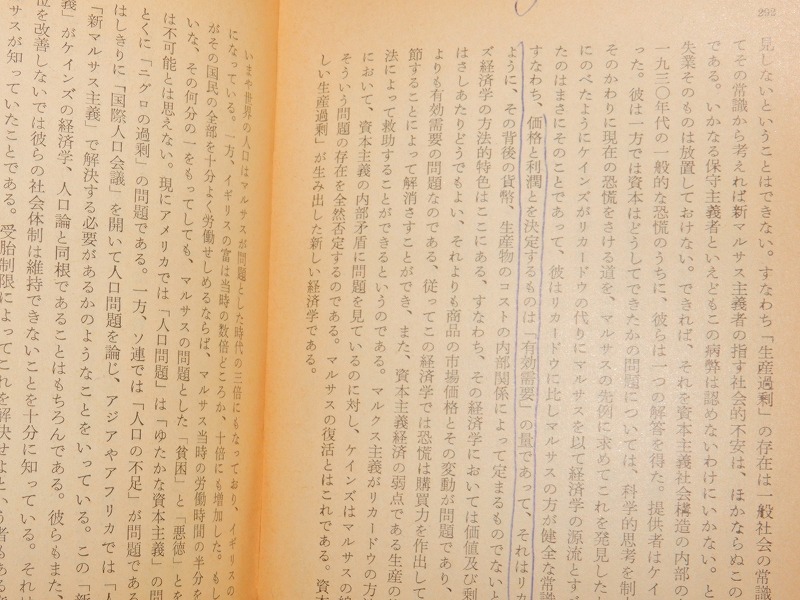 292
見しないということはできない。すなわち「生産過剰」の存在は一般社会の常識
てその常識から考えれば新マルサス主義者の指す社会的不安は、ほかならぬこの
である。いかなる保守主義者といえどもこの病弊は認めないわけにいかない。と
失業そのものは放置しておけない。できれば、それを資本主義社会構造の内部の
一九三〇年代の一般的な恐慌のうちに、彼らは一つの解答を得た。提供者はケイ
った。彼は一方では資本はどうしてできたかの問題については、科学的思考を制
そのかわりに現在の恐慌をさける道を、マルサスの先例に求めてこれを発見した
にのべたようにケインズがリカードウの代りにマルサスを以て経済学の源流とす
たのはまさにそのことであって、彼はリカードウに比しマルサスの方が健全な常識
すなわち、価格と利潤とを決定するものは「有効需要」の量であって、それはリカ
ように、その背後の貨幣、生産物のコストの内部関係によって定まるものでないと
ズ経済学の方法的特色はここにある、すなわち、その経済学においては価値及び剰
はさしあたりどうでもよい、それよりも商品の市場価格とその変動が問題であり、
よりも有効需要の問題なのである、従ってこの経済学では恐慌は購買力を作出して
節することによって解消さすことができ、また、資本主義経済の弱点である生産の
法によって救助することができるというのである。マルクス主義がリカードウの方
において、資本主義の内部矛盾に問題を見ているのに対し、ケインズはマルサスの
そういう問題の存在を全然否定するのである。マルサスの復活とはこれである。資
しい生産過剰」が生み出した新しい経済学である。
いまや世界の人口はマルサスが問題とした時代の三倍にもなっており、イギリスの
になっている。一方、イギリスの富は当時の数倍どころか、十倍にも増加した。もし
がその国民の全部を十分よく労働せしめるならば、マルサス当時の労働時間の半分を
いな、その何分の一をもってしても、マルサスの問題とした「貧困」と「悪徳」とを
は不可能とは思えない。現にアメリカでは「人口問題」は「ゆたかな資本主義」の問
とくに「ニグロの過剰」の問題である。一方、ソ連では「人口の不足」が問題である
はしきりに「国際人口会議」を開いて人口問題を論じ、アジアやアフリカでは「人
「新マルサス主義」で解決する必要があるかのようなことをいっている。この「新
義」がケインズの経済学、人口論と同根であることはもちろんである。彼らもまた、
位を改善しないでは彼らの社会体制は維持できないことを十分に知っている。それ
サスが知っていたことである。受胎制限によってこれを解決せよという者もある